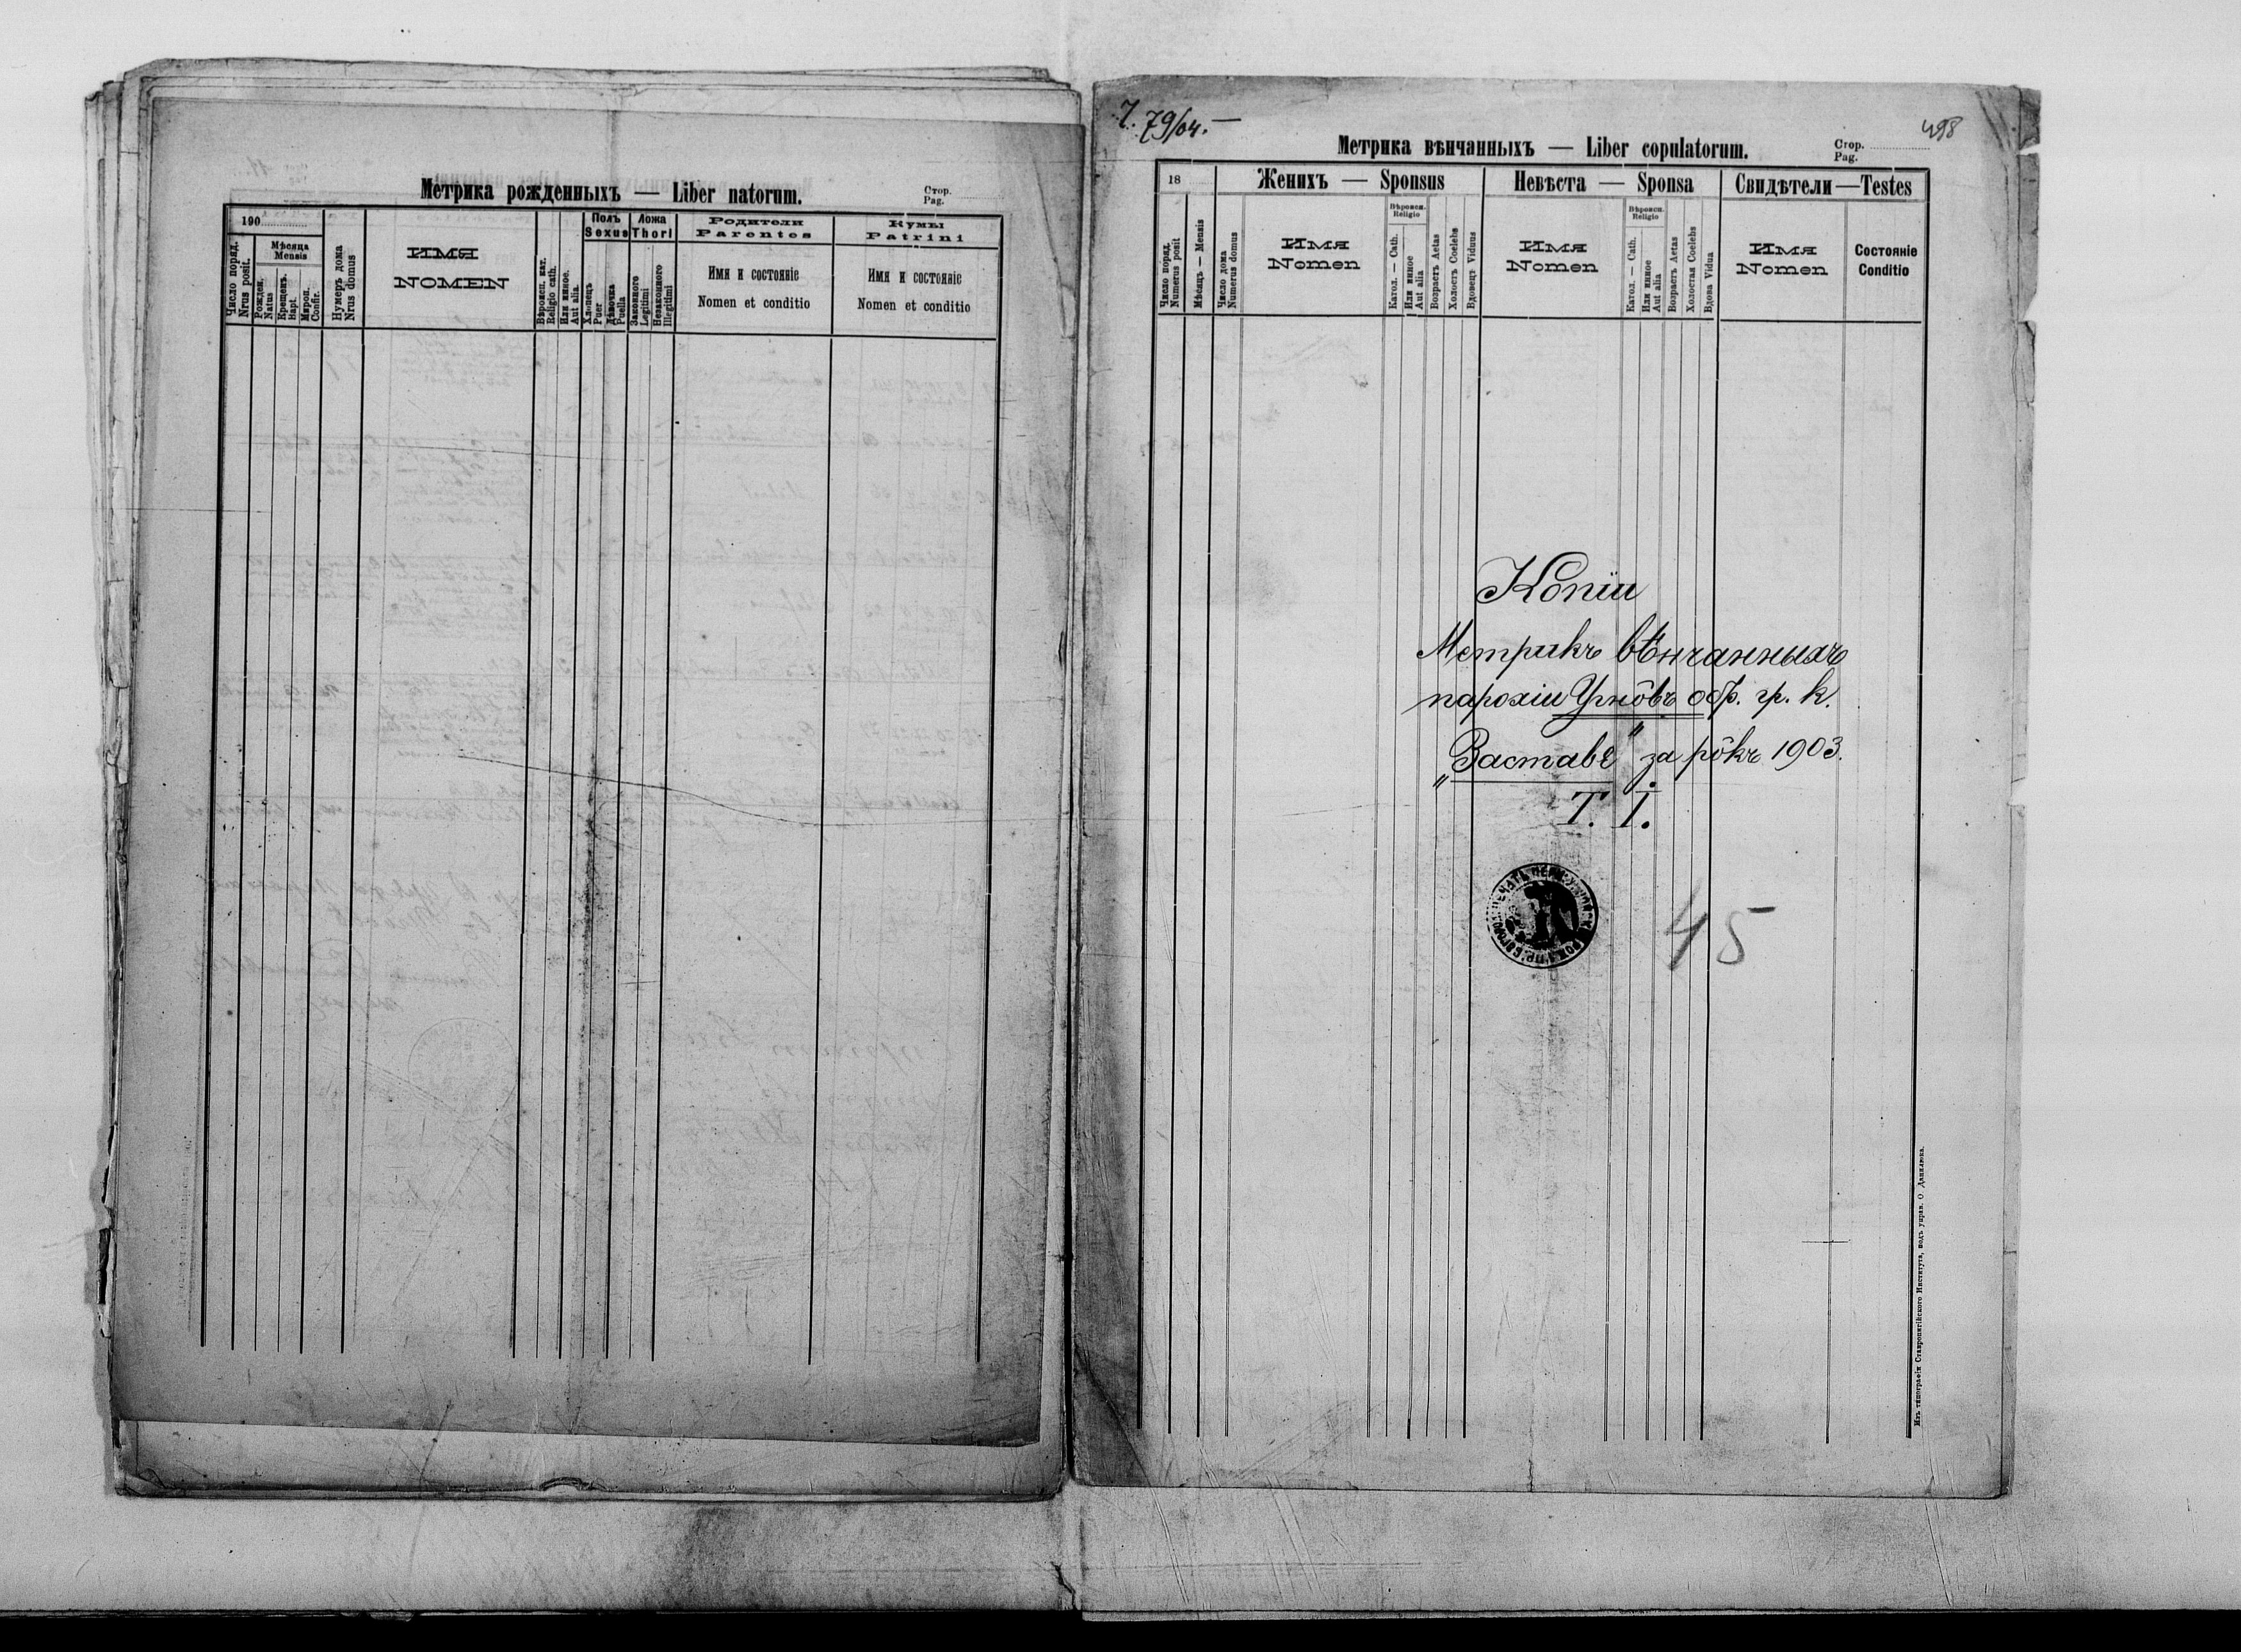 Метрика рожденныхъ — Liber natorum.
Стор.
Pag.
190
Число поряд.
Nrus posit.
Мѣсяца
Mensis
Рожден.
Natus
Крещенъ.
Bapt.
Мироп.
Confir.
Нумеръ дома
Nrus domus
ИМЯ
NOMEN
Вѣроисп. кат.
Religio cath.
Или иное.
Aut alia.
Полъ
Sexus
Хлопецъ
Puer
Дѣвочка
Puella
Ложа
Thori
Законного
Legitimi
Незаконного
Illegitimi
Родители
Parentes
Имя и состояніе
Nomen et conditio
Кумы
Patrini
Имя и состояніе
Nomen et conditio
79/04.—
498
Метрика вѣнчанныхъ — Liber copulatorum.
Стор.
Pag.
18
Число поряд.
Numerus posit
Мѣсяцъ — Mensis
Число дома
Numerus domus
Женихъ — Sponsus
Имя
Nomen
Вѣроисп.
Religio
Катол. — Cath.
Или иное
Aut alia
Возрастъ Aetas
Холостъ Coelebs
Вдовецъ Viduus
Невѣста — Sponsa
Имя
Nomen
Вѣроисп.
Religio
Катол. — Cath.
Или иное
Aut alia
Возрастъ Aetas
Холостая Coelebs
Вдова Vidua
Свидѣтели—Testes
Имя
Nomen
Состояніе
Conditio
Копіи
Метрикъ вѣнчанныхъ
парохіи Угнôвъ обр. гр. к.
„Заставе" за рôкъ 1903.
Т. I.
45
Изъ типографіи Ставропигійского Института, подъ управ. О Данилюка.